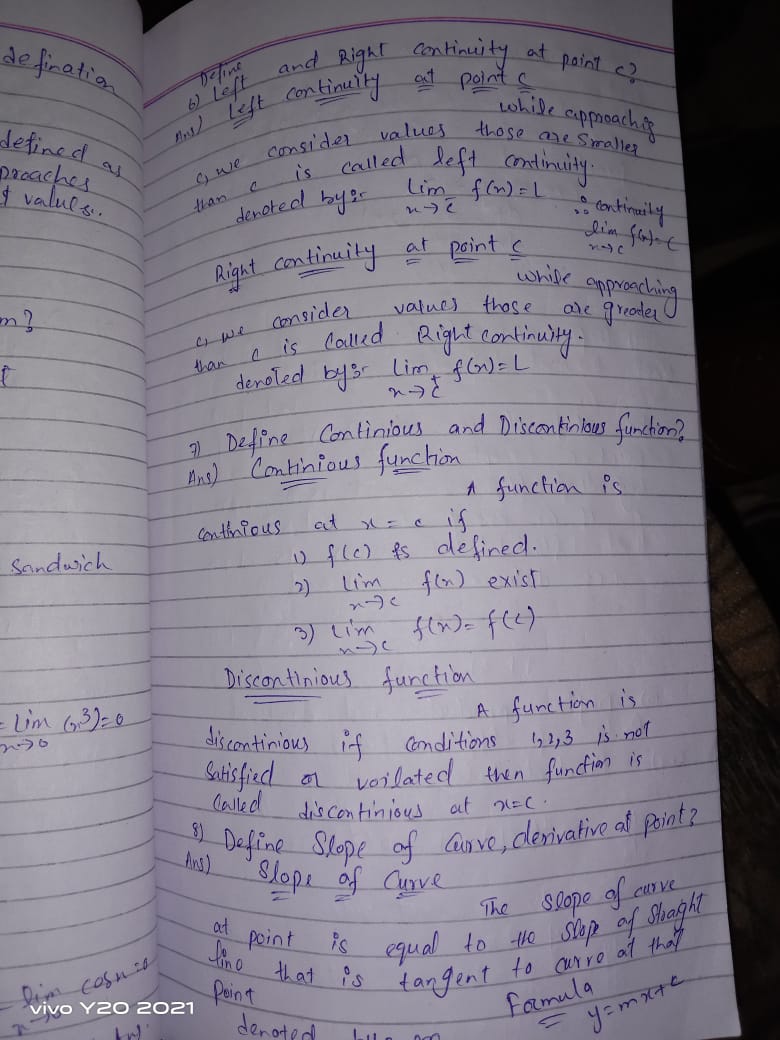 defination
defined as
proaches
f values.
m?
f
Sandwich
= Lim (x3)=0
x→0
Lim cosx=0
Define
6) Left and Right Continuity at point c?
Ans) Left continuity at point c
while approaching
c, we consider values those are smaller
than c is called left continuity.
denoted by:- Lim f(x)=L
x→c-
∵ continuity
lim f(x)=c
x→c
Right continuity at point c
while approaching
c, we consider values those are greader
than c is Called Right continuity.
denoted by:- Lim f(x)=L
x→c+
7) Define Continious and Discontinious function?
Ans) Continious function
A function is
conthious at x = c if
1) f(c) is defined.
2) Lim f(x) exist
x→c
3) Lim f(x)= f(c)
x→c
Discontinious function
A function is
discontinious if conditions 1,2,3 is not
Satisfied or voilated then function is
Called discontinious at x=c.
8) Define Slope of Curve, derivative at point?
Ans) Slope of Curve
The slope of curve
at point is equal to the slope of straght
line that is tangent to curve at that
Point
Formula
y=mx+c
denoted by m
vivo Y20 2021